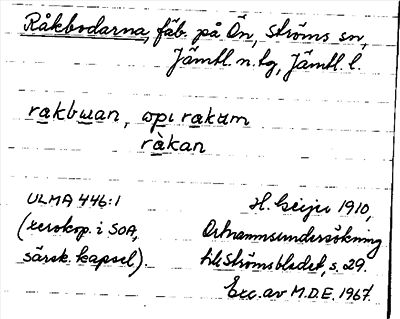 Råkbodarna, fäb. på Ön, Ströms sn,
Jämtl. n. tg, Jämtl. l.
rakbuan, opi rakum
ràkan
ULMA 446:1
(xerokop. i SOA,
särsk. kapsel).
H. Geijer 1910,
Ortnamnsundersökning
Strömsbladet, s. 29.
Exc. av M.D.E. 1967.